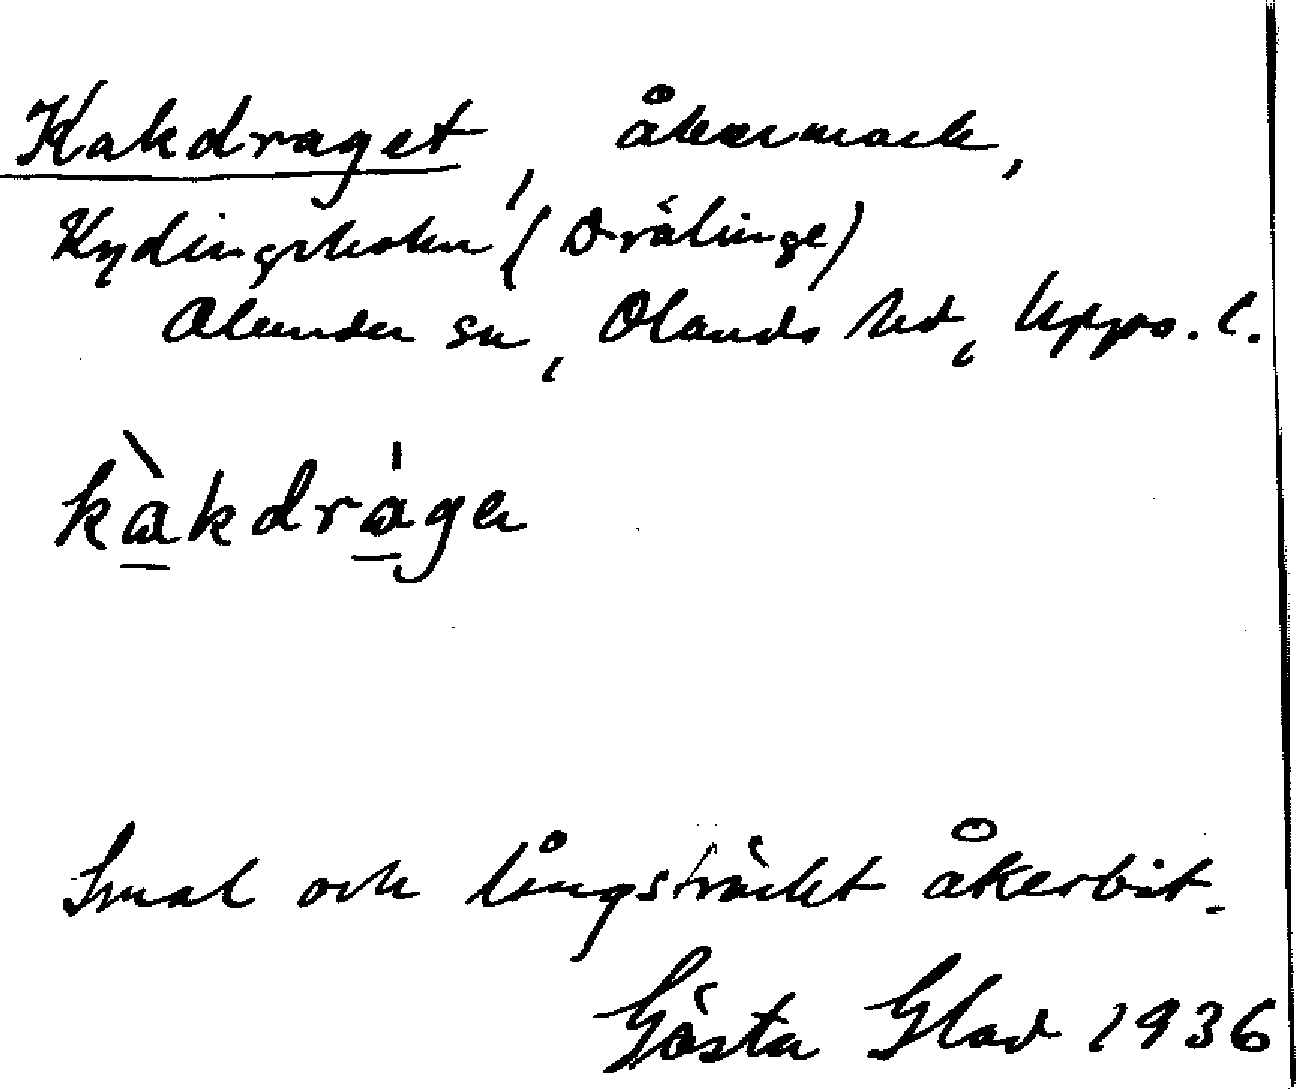 Kakdraget, åkermark,
Kydingeholm (Drälinge)
Alunda sn, Olands hd, Upps. l.
kàkdrága
Smal och långsträckt åkerbit.
Gösta Glad 1936